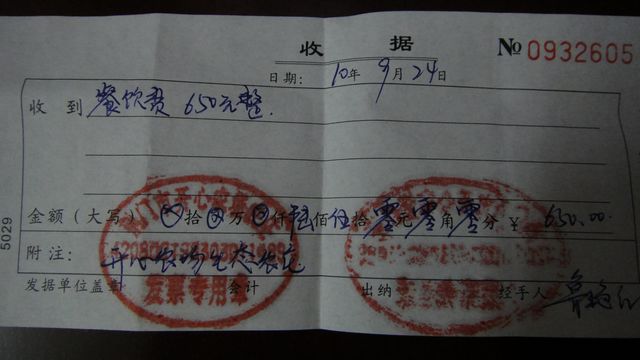 收 据 № 0932605
日期: 10年 9月24日
收 到 餐饮费 650元整.
金额(大写) ⊗拾⊗万⊗仟陆佰伍拾零元零角零分 ¥ 650.00.
附注: 开心农场生态农庄
发据单位盖章 会计 出纳 经手人
发票专用章
5029